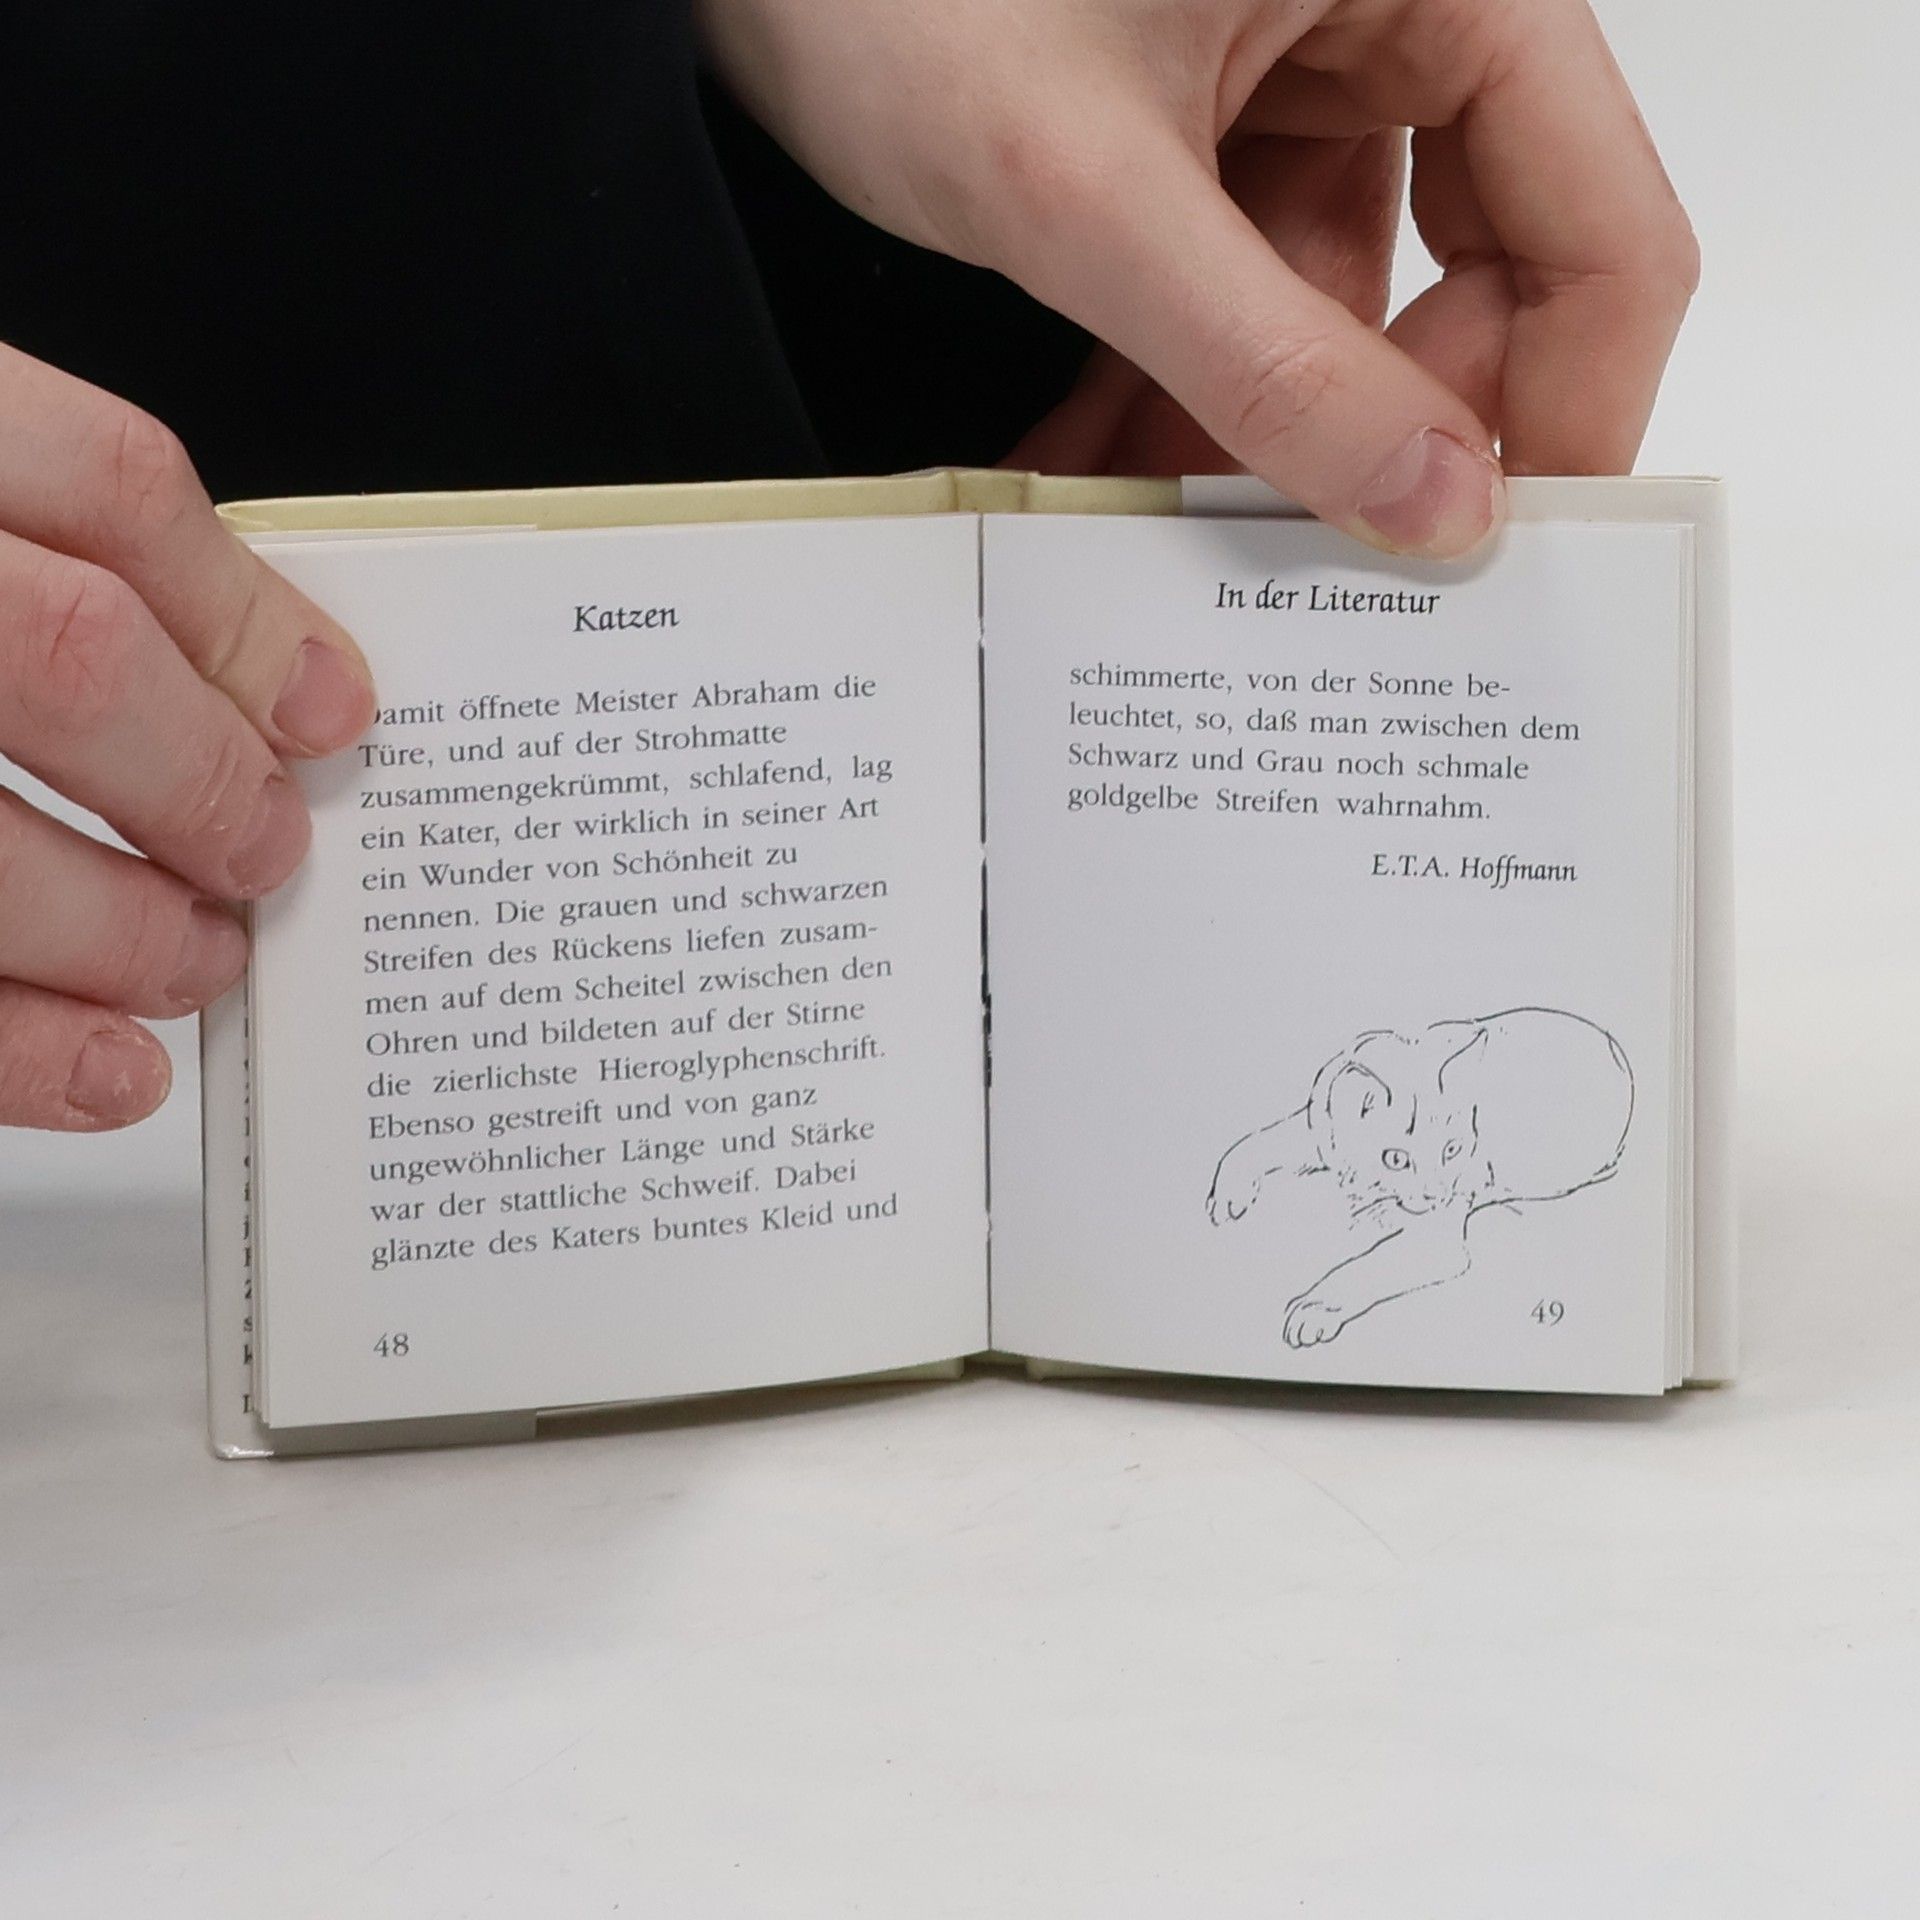 Katzen
Damit öffnete Meister Abraham die
Türe, und auf der Strohmatte
zusammengekrümmt, schlafend, lag
ein Kater, der wirklich in seiner Art
ein Wunder von Schönheit zu
nennen. Die grauen und schwarzen
Streifen des Rückens liefen zusam-
men auf dem Scheitel zwischen den
Ohren und bildeten auf der Stirne
die zierlichste Hieroglyphenschrift.
Ebenso gestreift und von ganz
ungewöhnlicher Länge und Stärke
war der stattliche Schweif. Dabei
glänzte des Katers buntes Kleid und
48
In der Literatur
schimmerte, von der Sonne be-
leuchtet, so, daß man zwischen dem
Schwarz und Grau noch schmale
goldgelbe Streifen wahrnahm.
E.T.A. Hoffmann
49